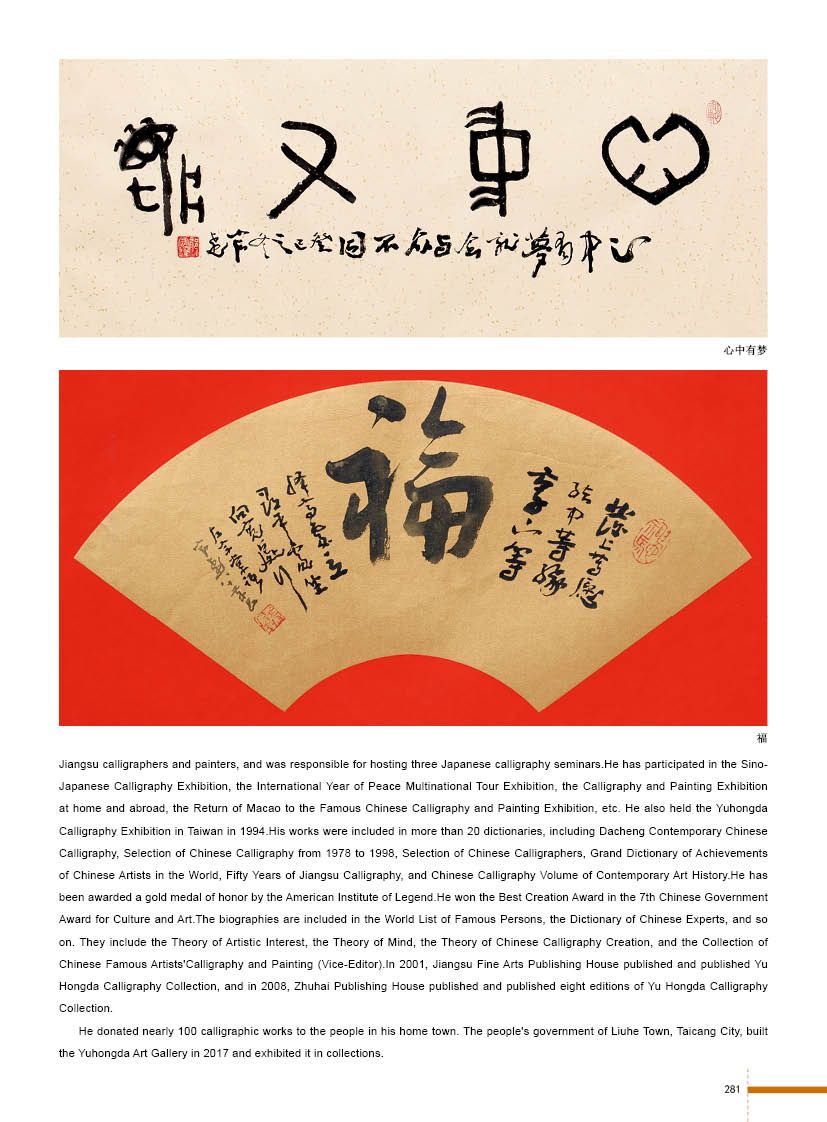 心中又梦
心中有梦就会与众不同癸巳之冬
心中有梦
福
福
Jiangsu calligraphers and painters, and was responsible for hosting three Japanese calligraphy seminars.He has participated in the Sino-
Japanese Calligraphy Exhibition, the International Year of Peace Multinational Tour Exhibition, the Calligraphy and Painting Exhibition
at home and abroad, the Return of Macao to the Famous Chinese Calligraphy and Painting Exhibition, etc. He also held the Yuhongda
Calligraphy Exhibition in Taiwan in 1994.His works were included in more than 20 dictionaries, including Dacheng Contemporary Chinese
Calligraphy, Selection of Chinese Calligraphy from 1978 to 1998, Selection of Chinese Calligraphers, Grand Dictionary of Achievements
of Chinese Artists in the World, Fifty Years of Jiangsu Calligraphy, and Chinese Calligraphy Volume of Contemporary Art History.He has
been awarded a gold medal of honor by the American Institute of Legend.He won the Best Creation Award in the 7th Chinese Government
Award for Culture and Art.The biographies are included in the World List of Famous Persons, the Dictionary of Chinese Experts, and so
on. They include the Theory of Artistic Interest, the Theory of Mind, the Theory of Chinese Calligraphy Creation, and the Collection of
Chinese Famous Artists'Calligraphy and Painting (Vice-Editor).In 2001, Jiangsu Fine Arts Publishing House published and published Yu
Hongda Calligraphy Collection, and in 2008, Zhuhai Publishing House published and published eight editions of Yu Hongda Calligraphy
Collection.
He donated nearly 100 calligraphic works to the people in his home town. The people's government of Liuhe Town, Taicang City, built
the Yuhongda Art Gallery in 2017 and exhibited it in collections.
281